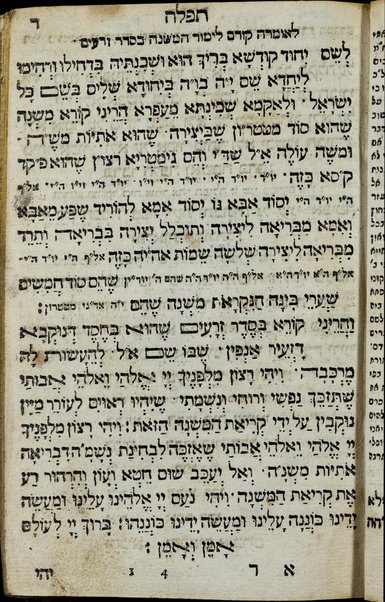 תפלה
ד
לאומרה קודם לימוד המשנה בסדר זרעים
לְשֵׁם יִחוּד קוּדְשָׁא בְּרִיךְ הוּא וּשְׁכִנְתֵּיהּ בִּדְחִילוּ וּרְחִימוּ
לְיַחֲדָא שֵׁם י״ה בו״ה בְּיִחוּדָא שְׁלִים בְּשֵׁם כָּל
יִשְׂרָאֵל וּלְאַקְמָא שְׁכִינְתָּא מֵעַפְרָא הֲרֵינִי קוֹרֵא מִשְׁנָה
שֶׁהוּא סוֹד מטטרו״ן שֶׁבַּיְצִירָה שֶׁהוּא אוֹתִיּוֹת מש״ה
וּמֹשֶׁה עוֹלֶה א״ל שד״י וְהֵם גִימַטְרִיָּא רָצוֹן שֶׁהוּא
ק״סא כָּזֶה
יְסוֹד אַבָּא גּוֹ יְסוֹד אִמָּא לְהוֹרִיד שֶׁפַע מֵאַבָּא
וְאִמָּא מִבְּרִיאָה לִיצִירָה וְתוּכְלַל יְצִירָה בִּבְרִיאָה וְתֵרֵד
מִבְּרִיאָה לִיצִירָה שְׁלֹשָׁה שֵׁמוֹת אהיה כָּזֶה
שהם סוד חמשים
שַׁעֲרֵי בִּינָה הַנִּקְרָאת מִשְׁנָה שֶׁהֵם
וַהֲרֵינִי קוֹרֵא בְּסֵדֶר זְרָעִים שֶׁהוּא בְּחֶסֶד דְּנוּקְבָא
דִּזְעֵיר אַנְפִּין שֶׁבּוֹ שֵׁם א״ל לְהַעֲשׂוֹת לָהּ
מֶרְכָּבָה וִיהִי רָצוֹן מִלְּפָנֶיךָ יְיָ אֱלֹהַי וֵאלֹהֵי אֲבוֹתַי
שֶׁתְּזַכֵּךְ נַפְשִׁי וְרוּחִי וְנִשְׁמָתִי שֶׁיִּהְיוּ רְאוּיִים לְעוֹרֵר מַיִין
נוּקְבִין עַל יְדֵי קְרִיאַת הַמִּשְׁנָה הַזֹּאת׃ וִיהִי רָצוֹן מִלְּפָנֶיךָ
יְיָ אֱלֹהַי וֵאלֹהֵי אֲבוֹתַי שֶׁאֶזְכֶּה לִבְחִינַת נְשָׁמָה דִּבְרִיאָה
אוֹתִיּוֹת מִשְׁנָ״ה וְאַל יְעַכֵּב שׁוּם חֵטְא וְעָוֹן וְהִרְהוּר רַע
אֶת קְרִיאַת הַמִּשְׁנָה וִיהִי נֹעַם יְיָ אֱלֹהֵינוּ עָלֵינוּ וּמַעֲשֵׂה
יָדֵינוּ כּוֹנְנָה עָלֵינוּ וּמַעֲשֵׂה יָדֵינוּ כּוֹנְנֵהוּ׃ בָּרוּךְ יְיָ לְעוֹלָם
אָמֵן וְאָמֵן׃
א ד 14 יהי